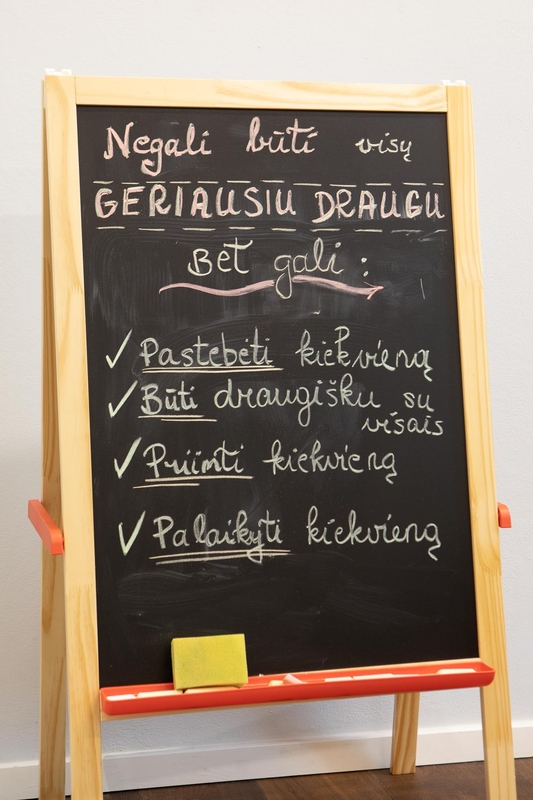 Negali būti visų
GERIAUSIU DRAUGU
Bet gali:
Pastebėti kiekvieną
Būti draugišku su
visais
Priimti kiekvieną
Palaikyti kiekvieną